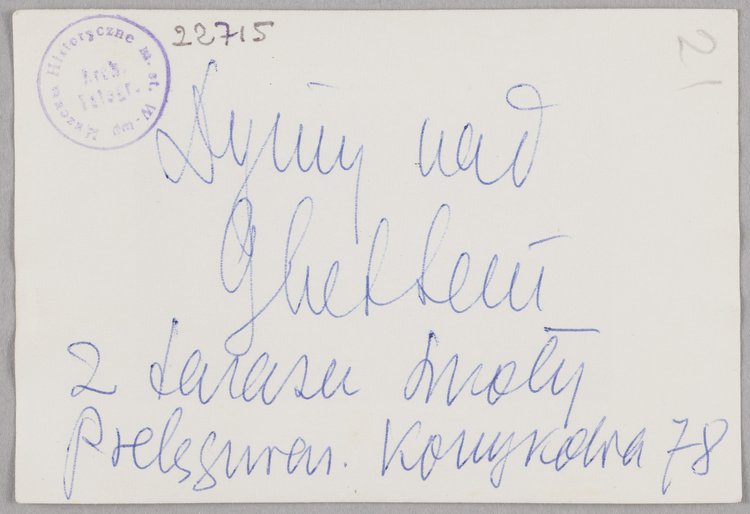 Muzeum Historyczne m. st. W-wy
Arch.
Fotogr.
22715
21
Dymy nad
Ghettem
z tarasu szkoły
Pielęgniar. Koszykowa 78